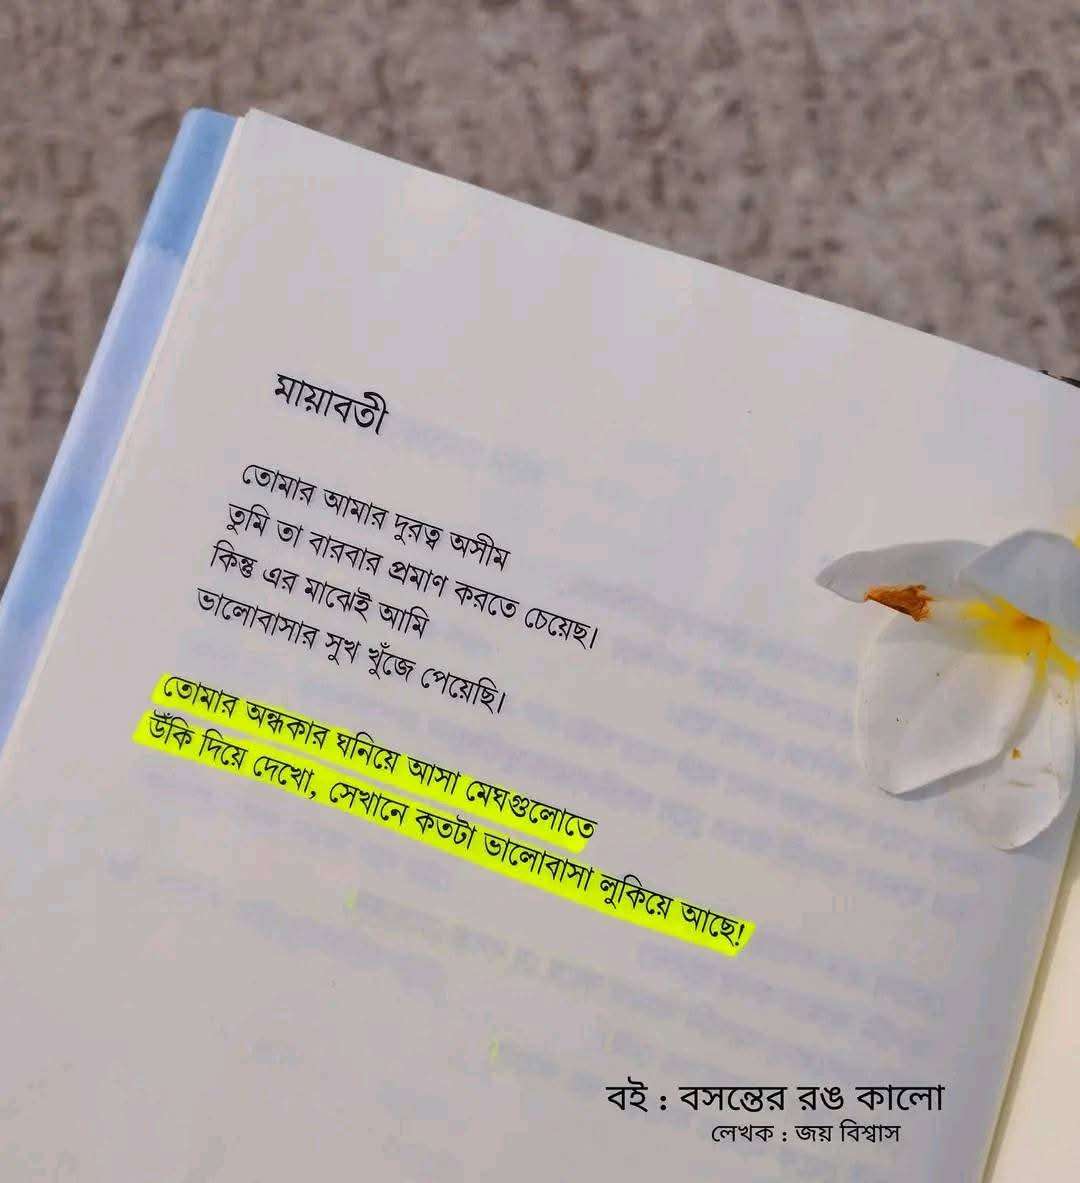 মায়াবতী
তোমার আমার দুরত্ব অসীম
তুমি তা বারবার প্রমাণ করতে চেয়েছ।
কিন্তু এর মাঝেই আমি
ভালোবাসার সুখ খুঁজে পেয়েছি।
তোমার অন্ধকার ঘনিয়ে আসা মেঘগুলোতে
উঁকি দিয়ে দেখো, সেখানে কতটা ভালোবাসা লুকিয়ে আছে!
বই : বসন্তের রঙ কালো
লেখক : জয় বিশ্বাস